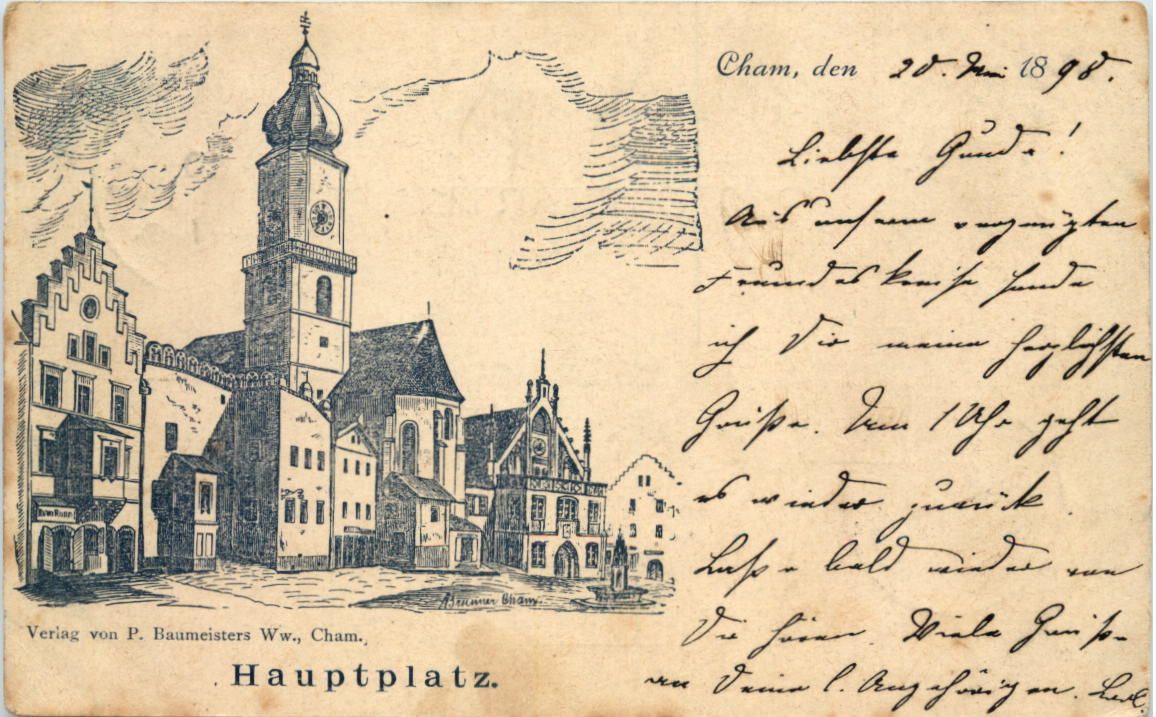 Cham, den 20. Mai 1898.
Liebste Gunda!
Aus unserem vergnügten
Freundeskreise sende
ich Dir meine herzlichsten
Grüße. Um 1 Uhr geht
es wieder zurück.
Lasse bald wieder von
Dir hören. Viele Grüße
an Deine l. Angehörigen.
ABrunner Cham.
Verlag von P. Baumeisters Ww., Cham.
Hauptplatz.